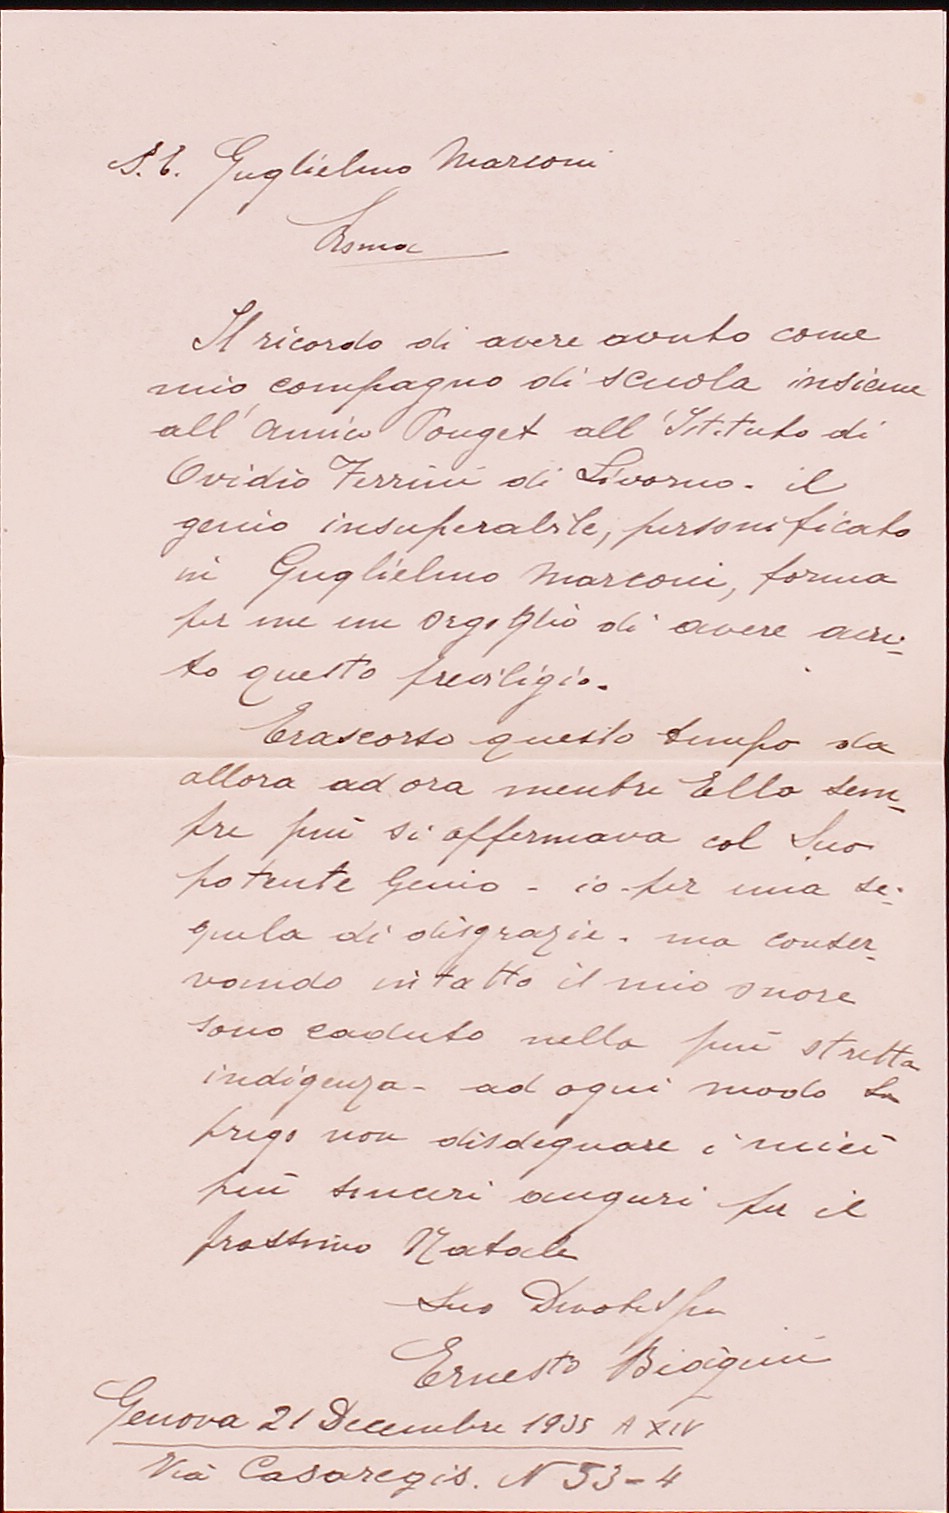 S. E. Guglielmo Marconi
Roma
Il ricordo di avere avuto come
mio compagno di scuola insieme
all'amico Pouget all'Istituto di
Ovidio Ferrini di Livorno - il
genio insuperabile, personificato
in Guglielmo Marconi, forma
per me un orgoglio di avere avu-
to questo previligio.
Trascorso questo tempo da
allora ad ora mentre Ella sem-
pre più si affermava col Suo
potente Genio - io - per una se-
quela di disgrazie - ma conser-
vando intatto il mio onore
sono caduto nella più stretta
indigenza - ad ogni modo La
prego non disdegnare i miei
più sinceri auguri per il
prossimo Natale
Suo
Ernesto Biagini
Genova 21 Decembre 1935 A XIV
Via Casaregis. N 53-4